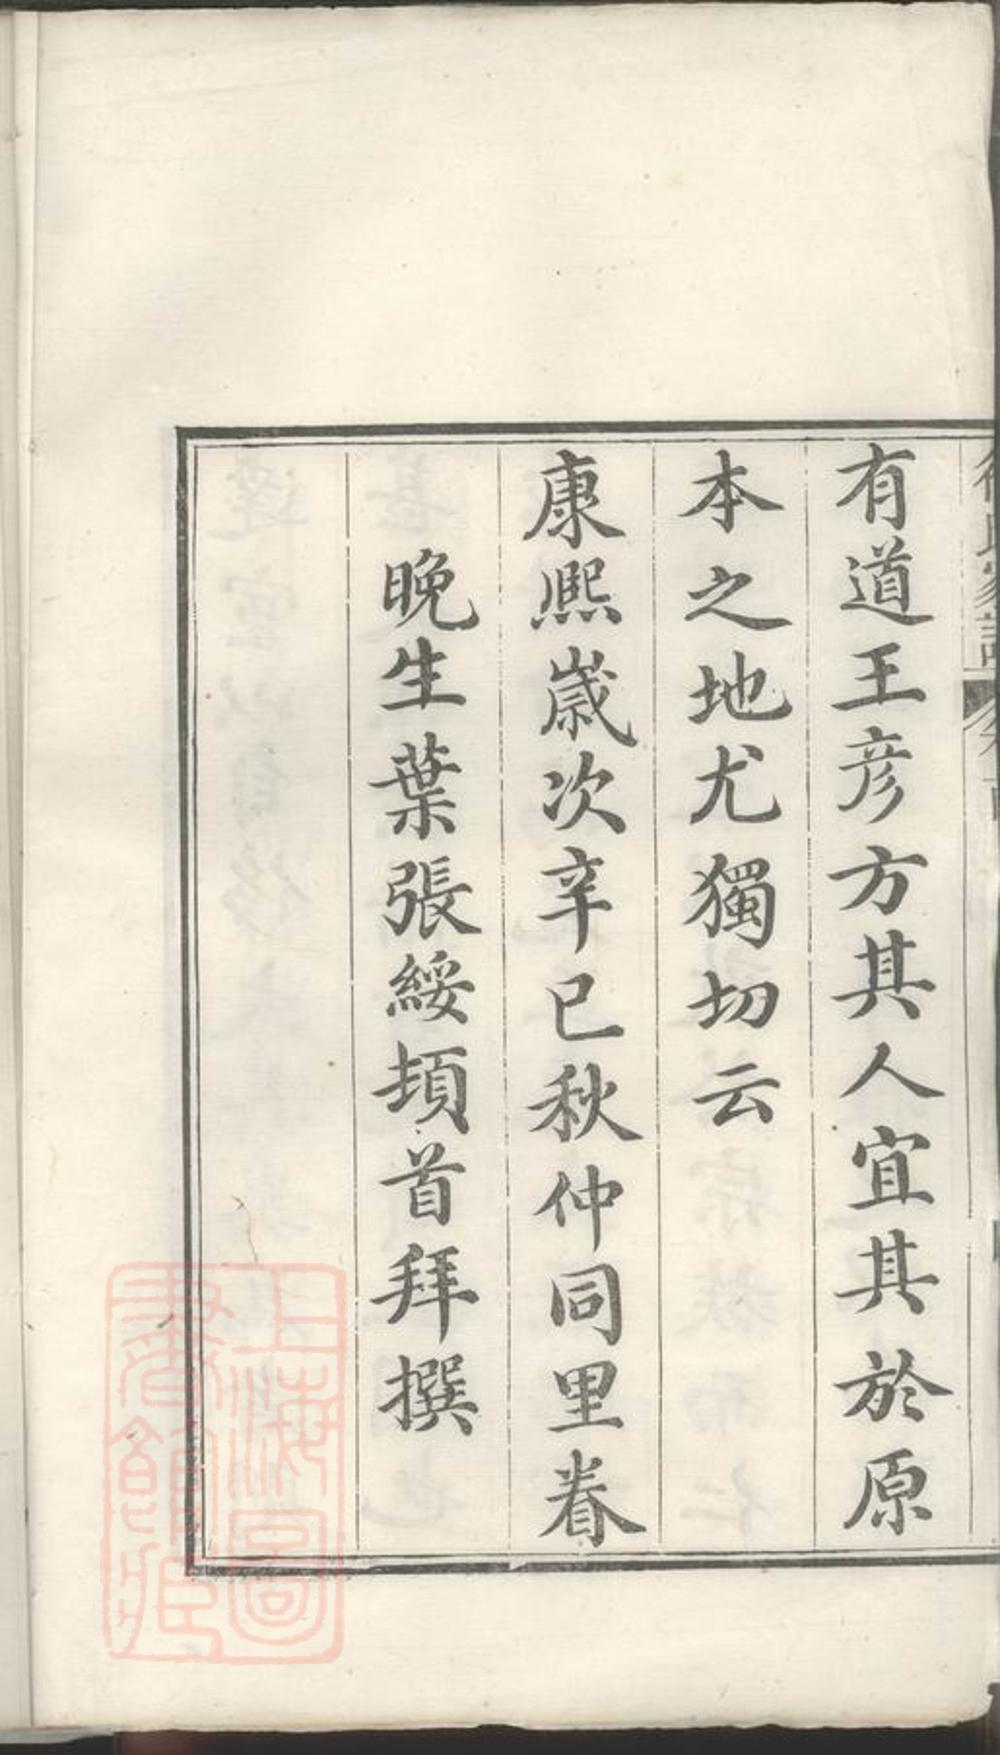 有道王彦方其人宜其於原
本之地尤獨切云
康熙歲次辛巳秋仲同里眷
晚生葉張綏頓首拜撰
上海圖
書館藏